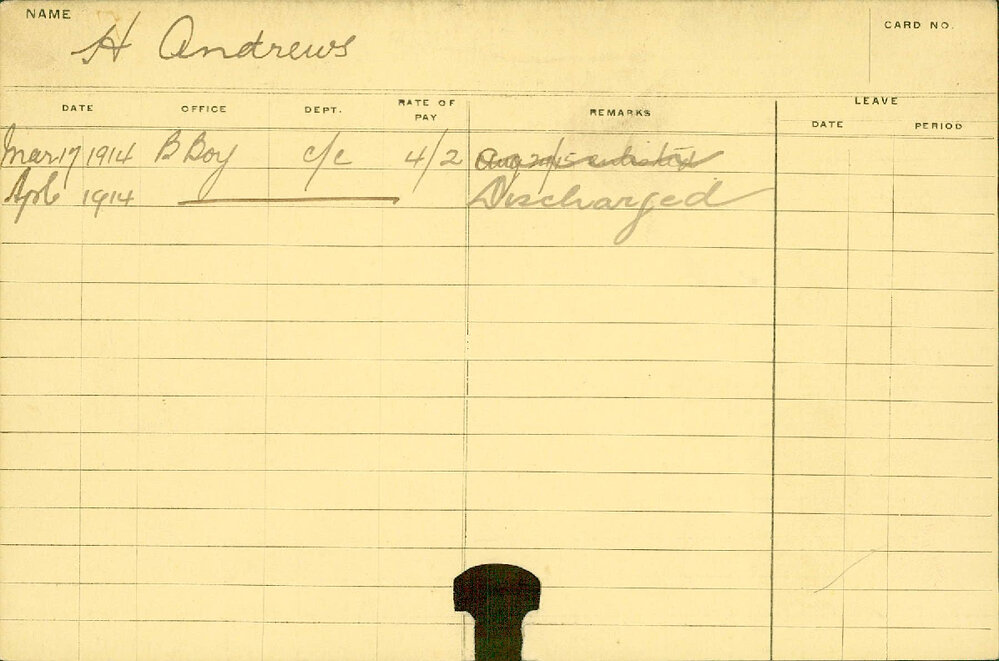 NAME
H Andrews
CARD NO.
DATE OFFICE DEPT. RATE OF PAY REMARKS LEAVE
DATE PERIOD
Mar 17 1914 B Boy c/c 4/2 Aug 20/15 enlisted
Apl 6 1914 Discharged